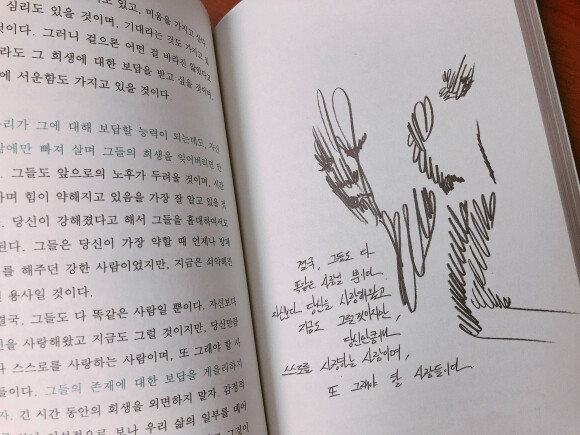 심리도 있을 것이며, 기대라는 것도 가지고 있
것이다. 그러니 겉으론 어떤 걸 바라진 않았다고
라도 그 희생에 대한 보답을 받고 싶을 것이며,
에 서운함도 가지고 있을 것이다.
우리가 그에 대해 보답할 능력이 되는데도, 자신
에만 빠져 살며 그들의 희생을 잊어버리면 안
그들도 앞으로의 노후가 두려울 것이며, 시간
가며 힘이 약해지고 있음을 가장 잘 알고 있을 것
당신이 강해졌다고 해서 그들을 홀대하여서도
된다. 그들은 당신이 가장 약할 때 언제나 방패
를 해주던 강한 사람이었지만, 지금은 쇠약해진
용사일 것이다.
결국, 그들도 다 똑같은 사람일 뿐이다. 자신보다
신을 사랑해왔고 지금도 그럴 것이지만, 당신만큼
나 스스로를 사랑하는 사람이며, 또 그래야 할 사
들이다. 그들의 존재에 대한 보답을 게을리하지
자. 긴 시간 동안의 희생을 외면하지 말자. 감정적
보나 우리 삶의 일부를 떼어
결국, 그들도 다
똑같은 사람일 뿐이다.
자신보다 당신을 사랑해왔고
지금도 그럴 것이지만,
당신만큼이나
스스로를 사랑하는 사람이며,
또 그래야 할 사람들이다.